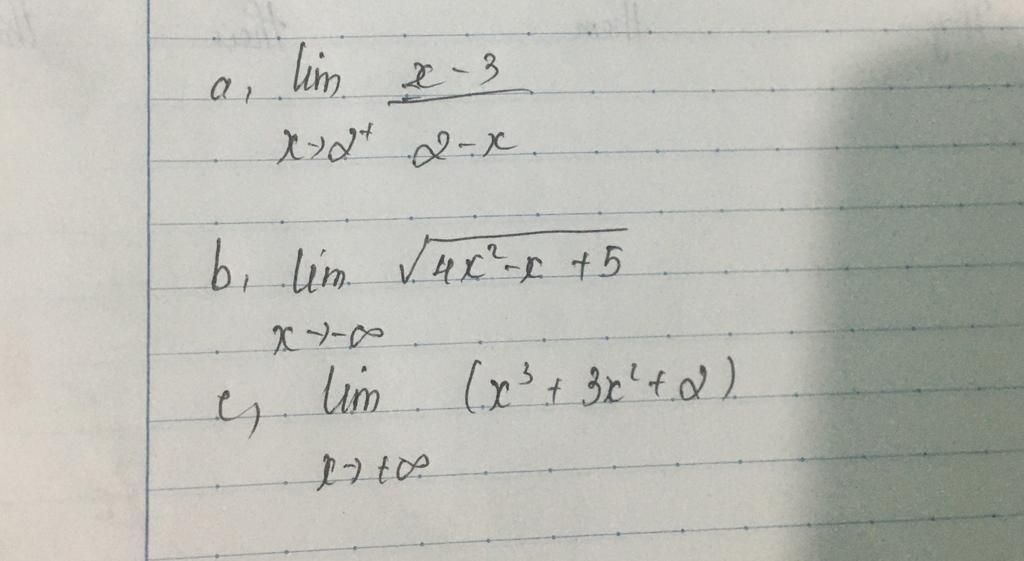 a, lim x - 3
x→2⁺ 2 - x
b, lim √4x² - x + 5
x→-∞
c, lim (x³ + 3x² + 2)
x→+∞